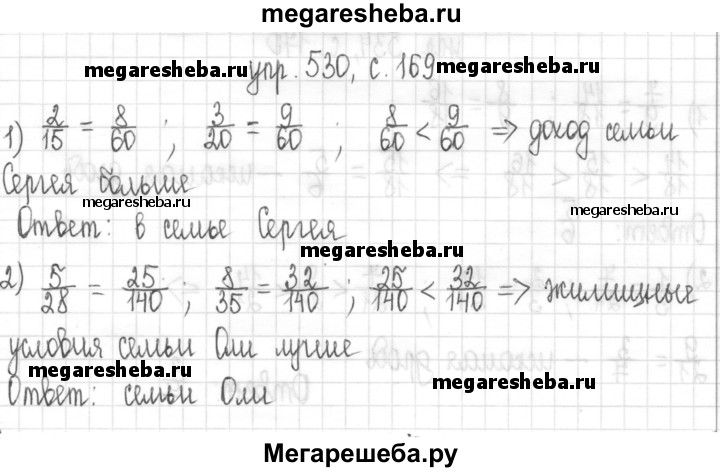 megaresheba.ru
megaresheba.ru упр. 530, с. 169 megaresheba.ru
1) 2/15 = 8/60 ; 3/20 = 9/60 ; 8/60 < 9/60 => доход семьи
Сергея больше
megaresheba.ru megaresheba.ru
Ответ: в семье Сергея
megaresheba.ru
2) 5/28 = 25/140 ; 8/35 = 32/140 ; 25/140 < 32/140 => жилищные
условия семьи Оли лучше
megaresheba.ru megaresheba.ru
Ответ: семьи Оли
Мегарешеба.ру